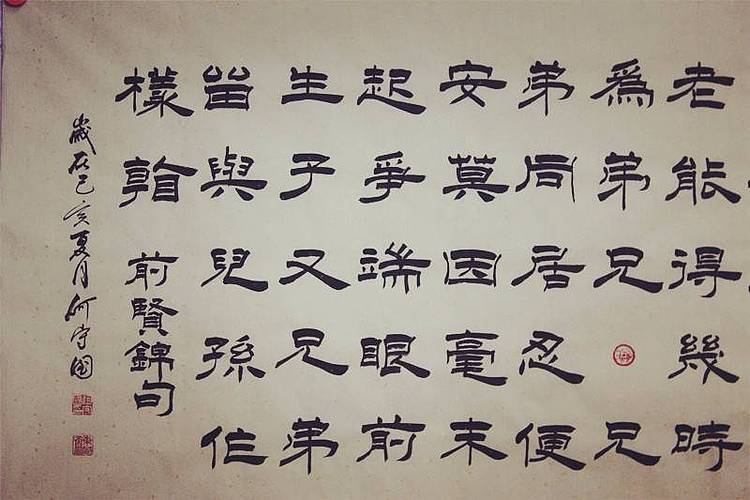 老能得幾時
爲弟兄兄
弟同居忍便
安莫因毫末
起爭端眼前
生子又兄弟
留與兒孫作
樣看 前賢錦句
歲在己亥夏月何守國